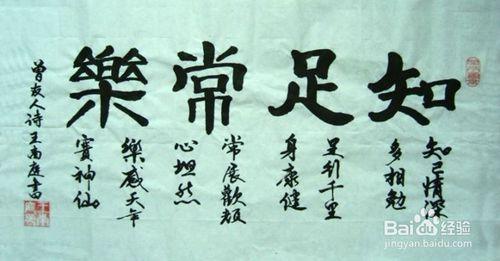 知足常樂
知己情深
多相勉
足行千里
身康健
常展歡顏
心坦然
樂感天年
賽神仙
友人诗王庭書
Bai 经验
jingyan.baidu.com